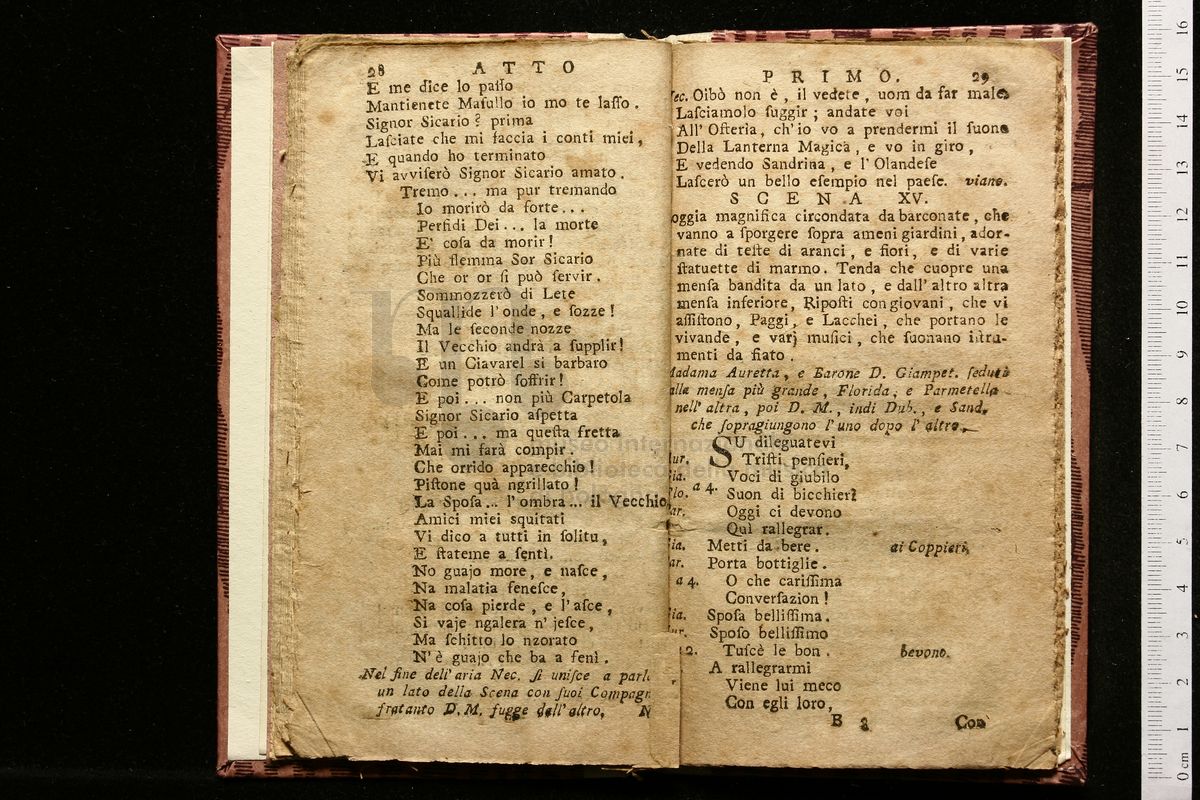 28 ATTO
E me dice lo paſſo
Mantienete Maſullo io mo te laſſo.
Signor Sicario? prima
Laſciate che mi faccia i conti miei,
E quando ho terminato
Vi avviſerò Signor Sicario amato.
Tremo... ma pur tremando
Io morirò da forte...
Perfidi Dei... la morte
E' coſa da morir!
Più flemma Sor Sicario
Che or or ſi può ſervir.
Sommozzerò di Lete
Squallide l'onde, e ſozze!
Ma le ſeconde nozze
Il Vecchio andrà a ſupplir!
E un Ciavarel si barbaro
Come potrò ſoffrir!
E poi... non più Carpetola
Signor Sicario aſpetta
E poi... ma queſta fretta
Mai mi farà compir.
Che orrido apparecchio!
Piſtone quà ngrillato!
La Spoſa... l'ombra... il Vecchio
Amici miei squitati
Vi dico a tutti in ſolitu,
E ſtateme a ſentì.
No guajo more, e naſce,
Na malatia feneſce,
Na coſa pierde, e l'aſce,
Si vaje ngalera n'jeſce,
Ma ſchitto lo nzorato
N'è guajo che ba a fenì.
Nel fine dell'aria Nec. ſi uniſce a parl
un lato della Scena con ſuoi Compagn
fratanto D. M. fugge dall'altro, N
PRIMO. 29
ec. Oibò non è, il vedete, uom da far male
Laſciamolo fuggir; andate voi
All'Oſterìa, ch'io vo a prendermi il ſuono
Della Lanterna Magica, e vo in giro,
E vedendo Sandrina, e l'Olandeſe
Laſcerò un bello eſempio nel paeſe. viano.
SCENA XV.
oggia magnifica circondata da barconate, che
vanno a ſporgere ſopra ameni giardini, ador-
nate di teſte di aranci, e fiori, e di varie
ſtatuette di marmo. Tenda che cuopre una
menſa bandita da un lato, e dall'altro altra
menſa inferiore, Ripoſti con giovani, che vi
aſſiſtono, Paggi, e Lacchei, che portano le
vivande, e varj muſici, che ſuonano iſtru-
menti da fiato.
Madama Auretta, e Barone D. Giampet. ſeduti
alla menſa più grande, Florida, e Parmetella
nell'altra, poi D. M., indi Dub., e Sand.
che ſopragiungono l'uno dopo l'altro.
SU dileguatevi
ur. Triſti penſieri,
ia. Voci di giubilo
lo. a 4. Suon di bicchieri
ar. Oggi ci devono
Quì rallegrar.
ia. Metti da bere. ai Coppieri,
ar. Porta bottiglie.
a 4. O che cariſſima
Converſazion!
ia. Spoſa belliſſima.
ur. Spoſo belliſſimo
2. Tuſcè le bon. bevono.
A rallegrarmi
Viene lui meco
Con egli loro,
B 3 Con